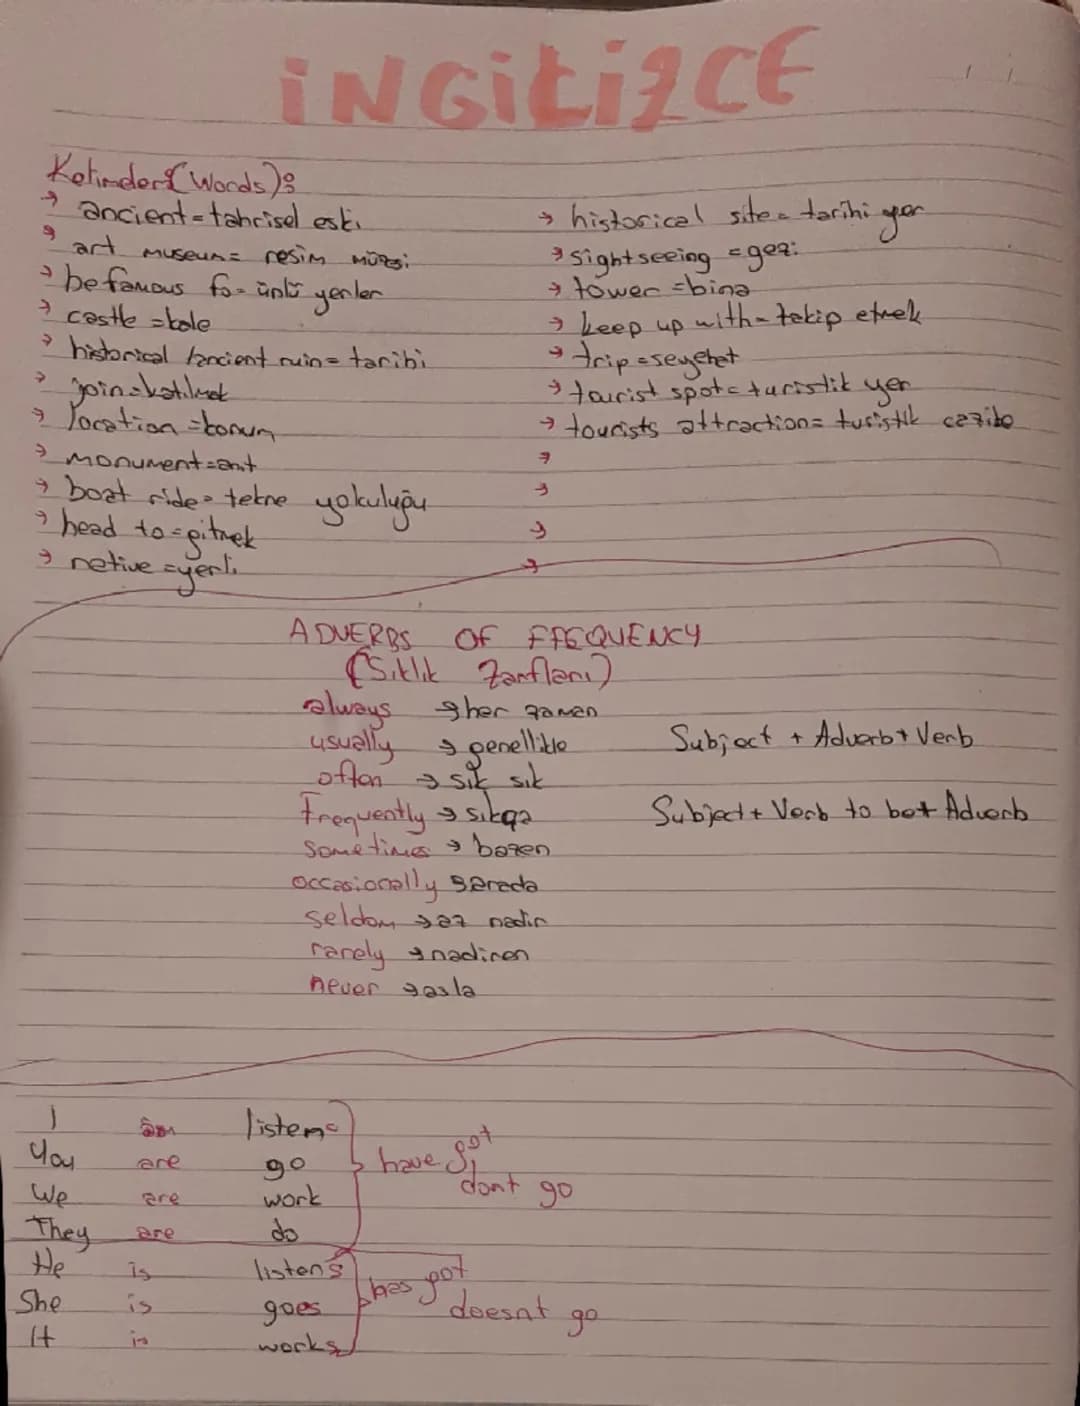 İNGİLİZCE
Kelimeler (Words):
→ ancient = tahrisel eski
→ art museum = resim müzesi
→ be famous fo = ünlü yerler
→ castle = kale
→ historical / ancient ruin = tarihi
→ join = katılmak
→ location = konum
→ monument = anıt
→ boat ride = tekne yokuluğu
→ head to = gitmek
→ netive = yerli
→ historical site = tarihi yer
→ sightseeing = gezi
→ tower = bina
→ keep up with = tekip etmek
→ trip = seyehet
→ tourist spot = turistik yer
→ tourists attraction = turistik cazibe
→
→
→
→
ADVERBS OF FREQUENCY
(Sıklık Zarfları)
always → her zaman
usually → genellikle
often → sık sık
Frequently → sıkça
Sometimes → bazen
occasionally → arada
seldom → az nadir
rarely → nadiren
never → asla
Subject + Adverb + Verb
Subject + Verb to be + Adverb
I am listen
You are go
We are work
They are do
have got
dont go
He is listens
She is goes
It is works
has got
doesnt go